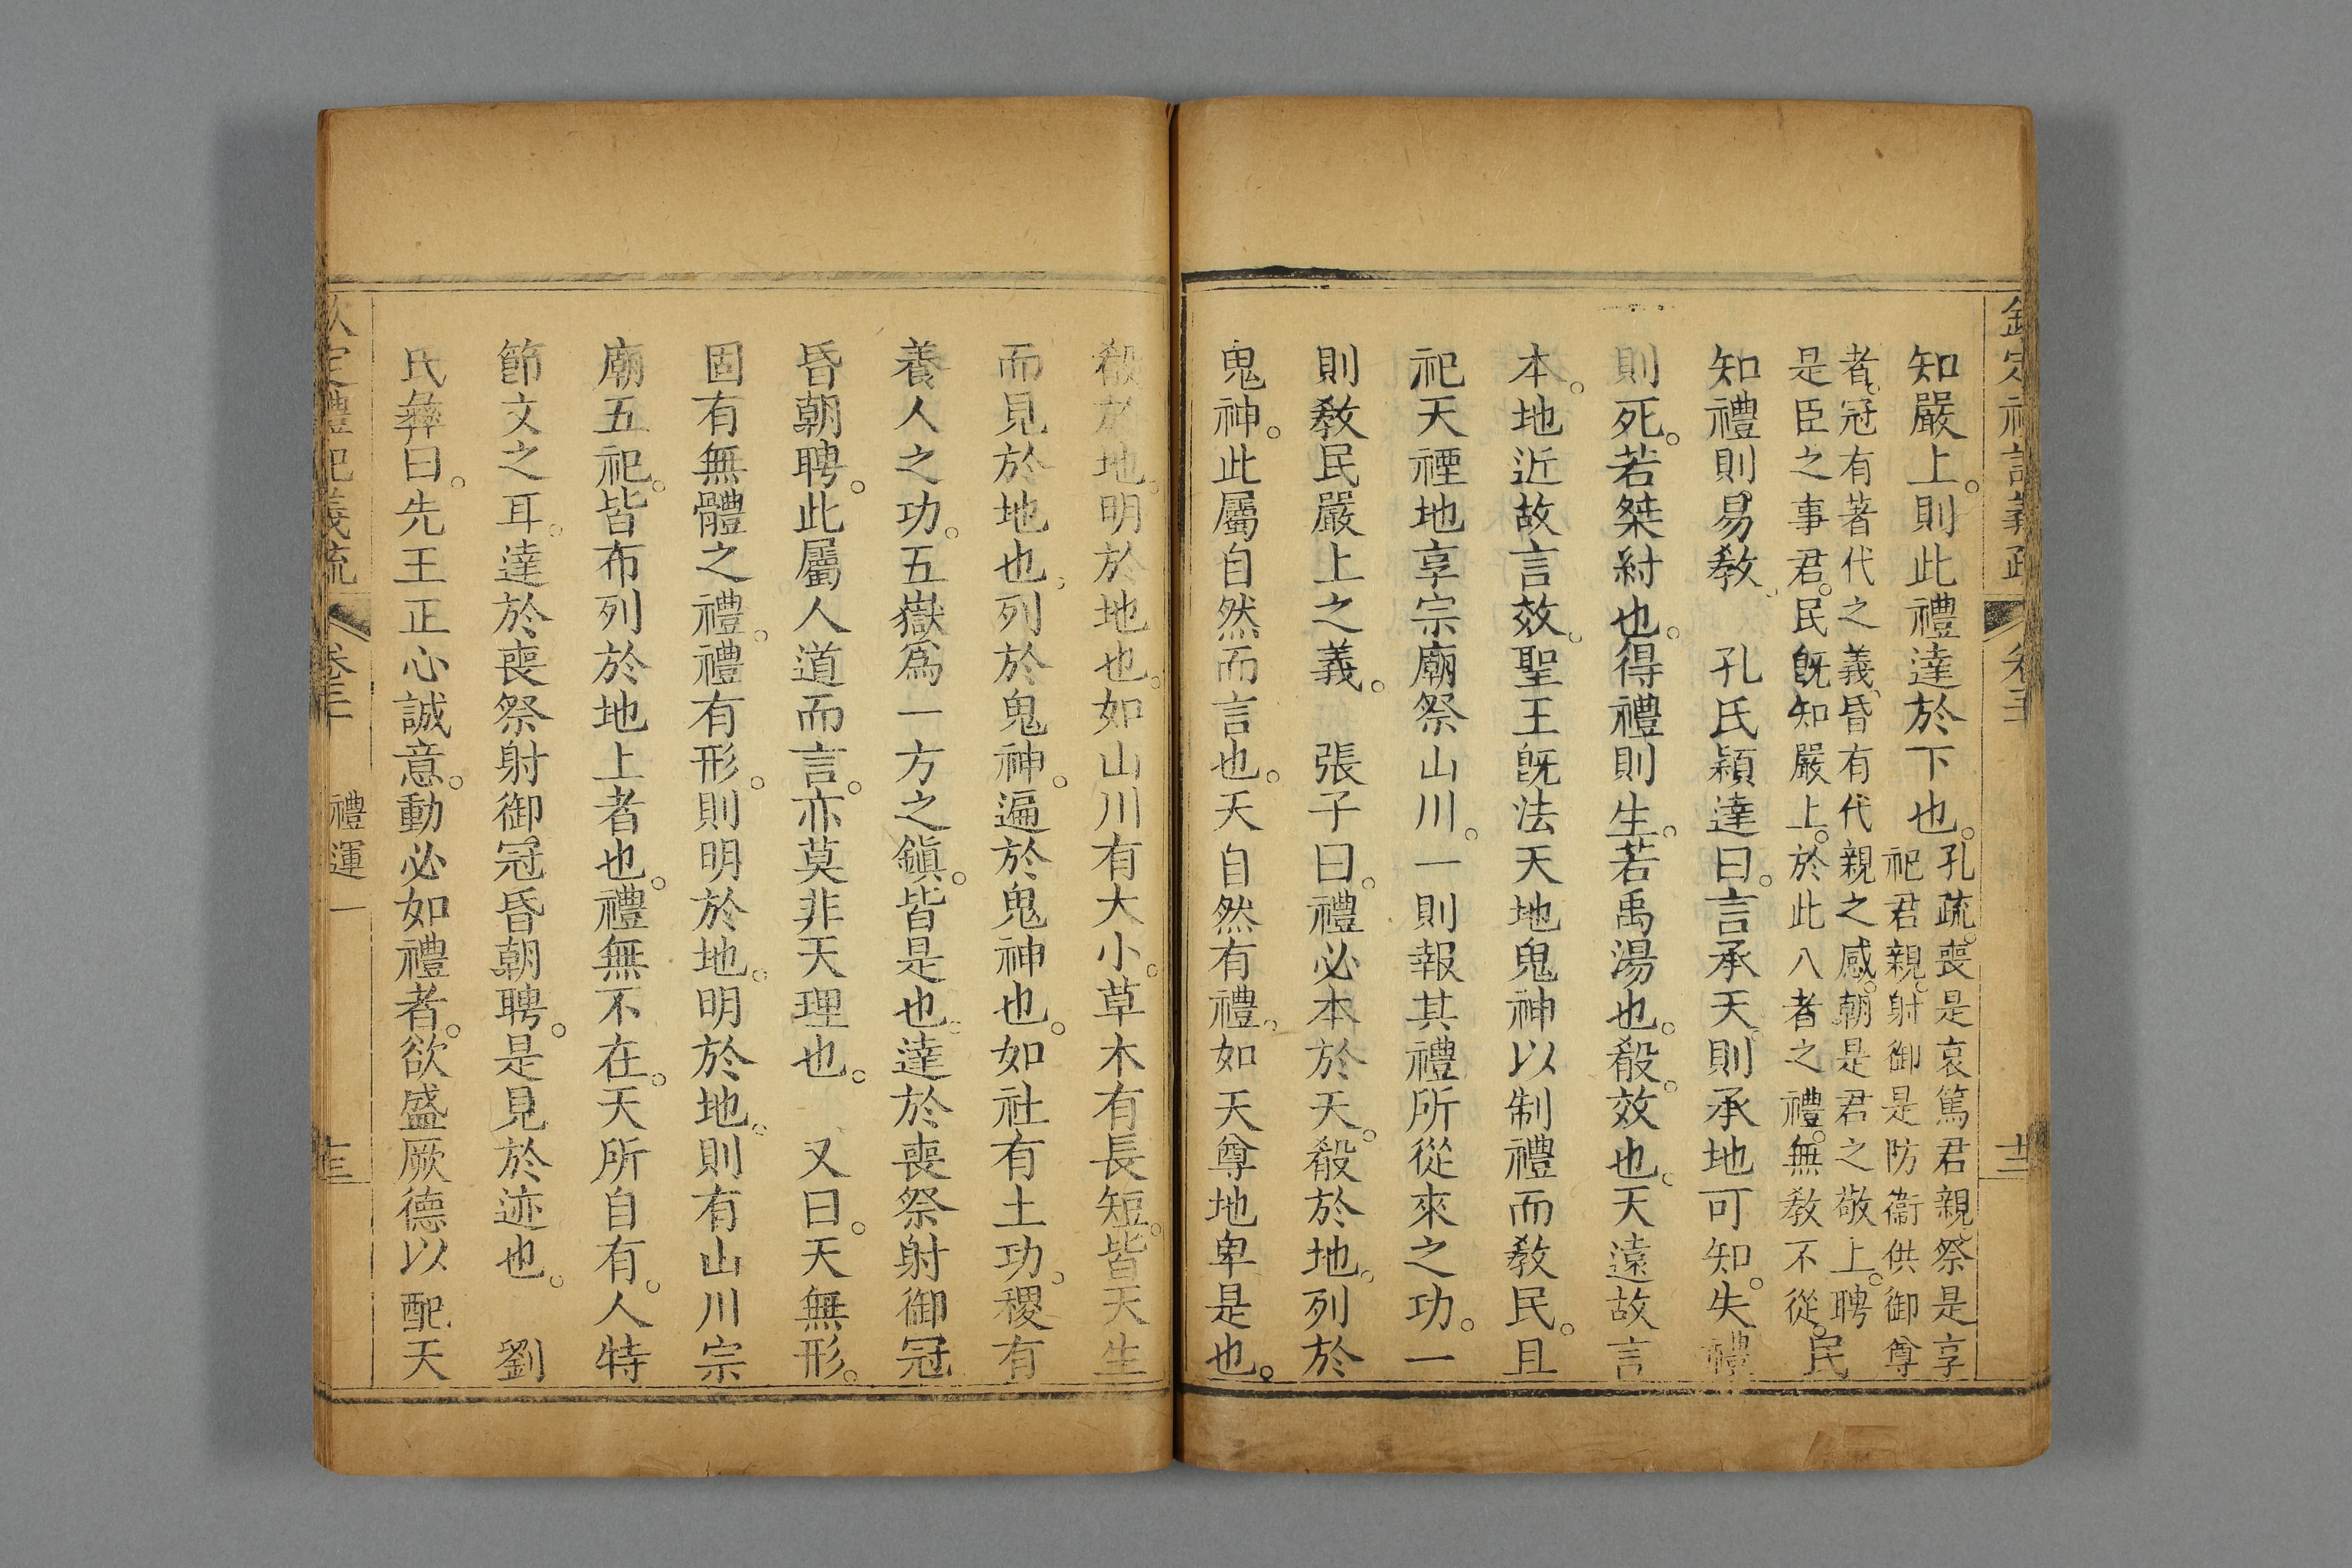 欽定禮記義疏 卷三 十二
知嚴上。則此禮達於下也。孔疏。喪是哀篤君親。祭是享
祀君親。射御是防衞供御尊
者。冠有著代之義。昏有代親之感。朝是君之敬上。聘
是臣之事君。民旣知嚴上。於此八者之禮。無敎不從。民
知禮則易敎。 孔氏穎達曰。言承天。則承地可知。失禮
則死。若桀紂也。得禮則生。若禹湯也。殽效也。天遠故言
本。地近故言效。聖王旣法天地鬼神以制禮而敎民。且
祀天禋地享宗廟祭山川。一則報其禮所從來之功。一
則敎民嚴上之義。 張子曰。禮必本於天。殽於地。列於
鬼神。此屬自然而言也。天自然有禮。如天尊地卑是也。
殽於地。明於地也。如山川有大小。草木有長短。皆天生
而見於地也。列於鬼神。遍於鬼神也。如社有土功。稷有
養人之功。五嶽爲一方之鎭。皆是也。達於喪祭射御冠
昏朝聘。此屬人道而言。亦莫非天理也。 又曰。天無形。
固有無體之禮。禮有形。則明於地。明於地。則有山川宗
廟五祀。皆布列於地上者也。禮無不在。天所自有。人特
節文之耳。達於喪祭射御冠昏朝聘。是見於迹也。 劉
氏彝曰。先王正心誠意。動必如禮者。欲盛厥德以配天
欽定禮記義疏 卷三 禮運一 十三